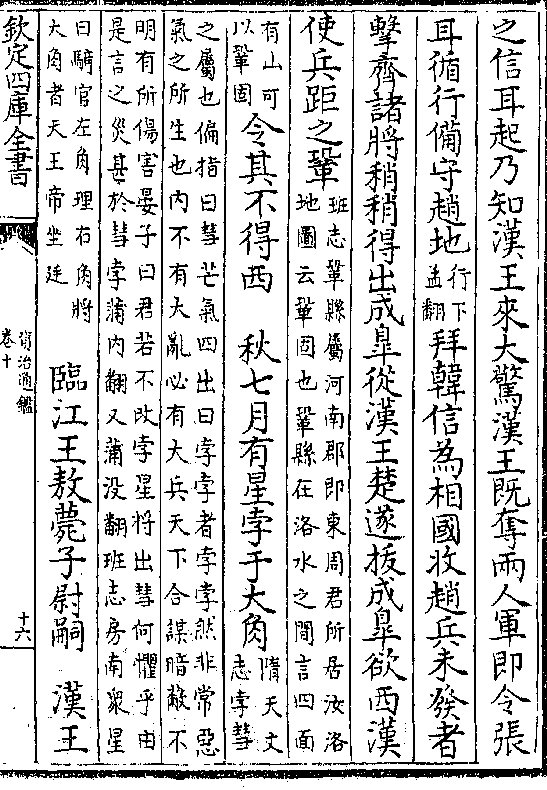 之信耳起乃知漢王來大驚漢王既奪兩人軍即令張
耳循行備守趙地行下孟翻拜韓信為相國收趙兵未發者
擊齊諸將稍稍得出成臯從漢王楚遂拔成臯欲西漢
使兵距之鞏班志鞏縣屬河南郡即東周君所居汝洛地圖云鞏固也鞏縣在洛水之間言四面
有山可以鞏固令其不得西　秋七月有星孛于大角隋天文志孛彗
之屬也偏指曰彗芒氣四出曰孛孛者孛孛然非常惡氣之所生也内不有大亂必有大兵天下合謀暗蔽不
明有所傷害晏子曰君若不改孛星將出彗何懼乎由是言之災甚於彗孛蒲内翻又蒲没翻班志房南衆星
曰騎官左角理右角將大角者天王帝坐廷　臨江王敖薨子尉嗣　漢王
欽定四庫全書
資治通鑑
卷十
十六